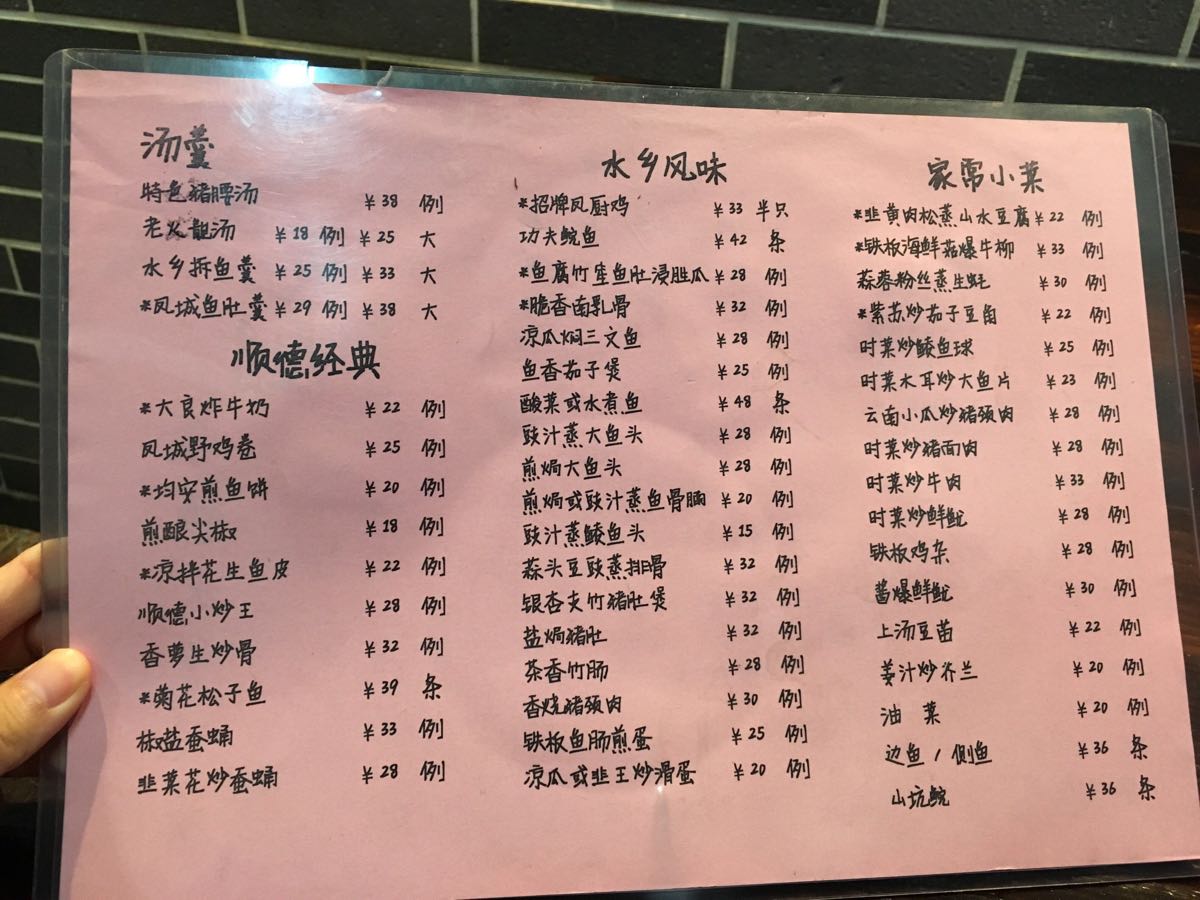 汤羹
特色猪腰汤 ¥38 例
老火靓汤 ¥18 例 ¥25 大
水乡拆鱼羹 ¥25 例 ¥33 大
*凤城鱼肚羹 ¥29 例 ¥38 大
顺德经典
*大良炸牛奶 ¥22 例
凤城野鸡卷 ¥25 例
*均安煎鱼饼 ¥20 例
煎酿尖椒 ¥18 例
*凉拌花生鱼皮 ¥22 例
顺德小炒王 ¥28 例
香萝生炒骨 ¥32 例
*菊花松子鱼 ¥39 条
椒盐蚕蛹 ¥33 例
韭菜花炒蚕蛹 ¥28 例
水乡风味
*招牌凤厨鸡 ¥33 半只
功夫鲩鱼 ¥42 条
*鱼腐竹笙鱼肚浸胜瓜 ¥28 例
*脆香南乳骨 ¥32 例
凉瓜焖三文鱼 ¥28 例
鱼香茄子煲 ¥25 例
酸菜或水煮鱼 ¥48 条
豉汁蒸大鱼头 ¥28 例
煎焗大鱼头 ¥28 例
煎焗或豉汁蒸鱼骨腩 ¥20 例
豉汁蒸鲮鱼头 ¥15 例
蒜头豆豉蒸排骨 ¥32 例
银杏支竹猪肚煲 ¥32 例
盐焗猪肚 ¥32 例
茶香竹肠 ¥28 例
香烧猪颈肉 ¥30 例
铁板鱼肠煎蛋 ¥25 例
凉瓜或韭王炒滑蛋 ¥20 例
家常小菜
*韭黄肉松蒸山水豆腐 ¥22 例
*铁板海鲜菇爆牛柳 ¥33 例
蒜蓉粉丝蒸生蚝 ¥30 例
*紫苏炒茄子豆角 ¥22 例
时菜炒鲮鱼球 ¥25 例
时菜木耳炒大鱼片 ¥23 例
云南小瓜炒猪颈肉 ¥28 例
时菜炒猪面肉 ¥28 例
时菜炒牛肉 ¥33 例
时菜炒鲜鱿 ¥28 例
铁板鸡杂 ¥28 例
酱爆鲜鱿 ¥30 例
上汤豆苗 ¥22 例
姜汁炒芥兰 ¥20 例
油菜 ¥20 例
边鱼/侧鱼 ¥36 条
山坑鲩 ¥36 条